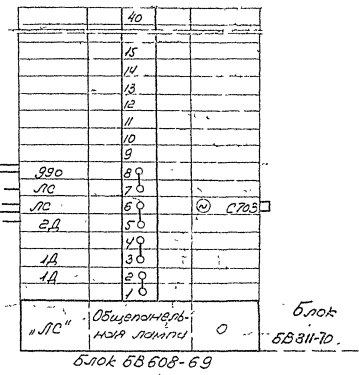 40
15
14
13
12
11
10
9
990 8
ЛС 7
ЛС 6 ~ С703
2Д 5
4
1Д 3
1Д 2
1
„ЛС" Общепанель-
ная лампа О
Блок
БВ811-70
Блок БВ608-69